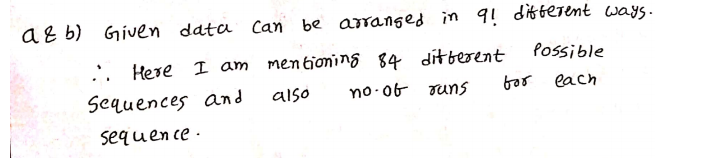 a & b) Given data can be arranged in 9! different ways.
∴ Here I am mentioning 84 different Possible
Sequences and also no.of runs for each
sequence.